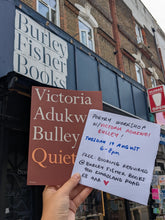 Burley
Fisher
Books
Victoria
Adukwei
Bulley
Quiet
POETRY WORKSHOP
W/ VICTORIA ADUKWEI
BULLEY!
TUESDAY 19 AUGUST
6-8pm
FREE. BOOKING REQUIRED
@ BURLEY FISHER BOOKS
400 KINGSLAND ROAD
E8 4AA